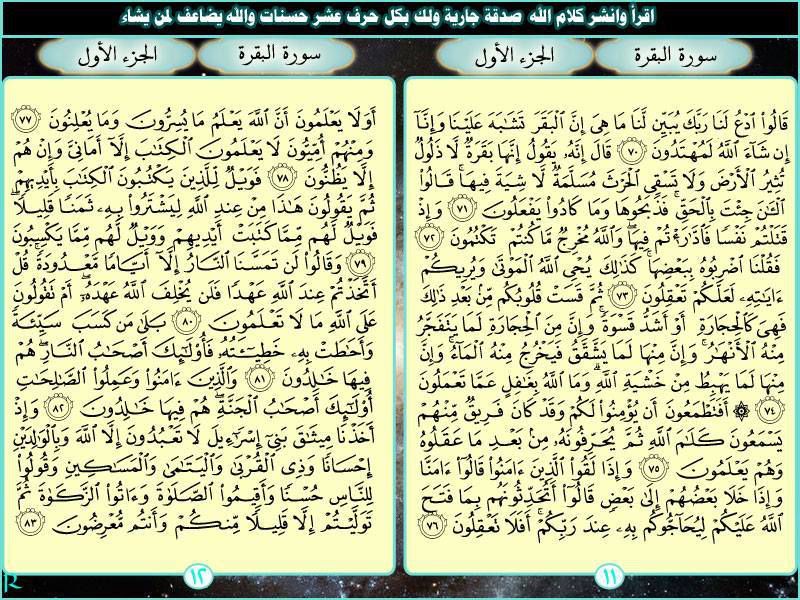 اقرأ وانشر كلام الله صدقة جارية ولك بكل حرف عشر حسنات والله يضاعف لمن يشاء
سورة البقرة
الجزء الأول
قَالُوا۟ ٱدْعُ لَنَا رَبَّكَ يُبَيِّن لَّنَا مَا هِىَ إِنَّ ٱلْبَقَرَ تَشَٰبَهَ عَلَيْنَا وَإِنَّآ
إِن شَآءَ ٱللَّهُ لَمُهْتَدُونَ ٧٠ قَالَ إِنَّهُۥ يَقُولُ إِنَّهَا بَقَرَةٌ لَّا ذَلُولٌ
تُثِيرُ ٱلْأَرْضَ وَلَا تَسْقِى ٱلْحَرْثَ مُسَلَّمَةٌ لَّا شِيَةَ فِيهَا ۚ قَالُوا۟
ٱلْـَٰٔنَ جِئْتَ بِٱلْحَقِّ ۚ فَذَبَحُوهَا وَمَا كَادُوا۟ يَفْعَلُونَ ٧١ وَإِذْ
قَتَلْتُمْ نَفْسًا فَٱدَّٰرَْٰٔتُمْ فِيهَا ۖ وَٱللَّهُ مُخْرِجٌ مَّا كُنتُمْ تَكْتُمُونَ ٧٢
فَقُلْنَا ٱضْرِبُوهُ بِبَعْضِهَا ۚ كَذَٰلِكَ يُحْىِ ٱللَّهُ ٱلْمَوْتَىٰ وَيُرِيكُمْ
ءَايَٰتِهِۦ لَعَلَّكُمْ تَعْقِلُونَ ٧٣ ثُمَّ قَسَتْ قُلُوبُكُم مِّنۢ بَعْدِ ذَٰلِكَ
فَهِىَ كَٱلْحِجَارَةِ أَوْ أَشَدُّ قَسْوَةً ۚ وَإِنَّ مِنَ ٱلْحِجَارَةِ لَمَا يَتَفَجَّرُ
مِنْهُ ٱلْأَنْهَٰرُ ۚ وَإِنَّ مِنْهَا لَمَا يَشَّقَّقُ فَيَخْرُجُ مِنْهُ ٱلْمَآءُ ۚ وَإِنَّ
مِنْهَا لَمَا يَهْبِطُ مِنْ خَشْيَةِ ٱللَّهِ ۗ وَمَا ٱللَّهُ بِغَٰفِلٍ عَمَّا تَعْمَلُونَ
٧٤ ۞ أَفَتَطْمَعُونَ أَن يُؤْمِنُوا۟ لَكُمْ وَقَدْ كَانَ فَرِيقٌ مِّنْهُمْ
يَسْمَعُونَ كَلَٰمَ ٱللَّهِ ثُمَّ يُحَرِّفُونَهُۥ مِنۢ بَعْدِ مَا عَقَلُوهُ
وَهُمْ يَعْلَمُونَ ٧٥ وَإِذَا لَقُوا۟ ٱلَّذِينَ ءَامَنُوا۟ قَالُوٓا۟ ءَامَنَّا
وَإِذَا خَلَا بَعْضُهُمْ إِلَىٰ بَعْضٍ قَالُوٓا۟ أَتُحَدِّثُونَهُم بِمَا فَتَحَ
ٱللَّهُ عَلَيْكُمْ لِيُحَآجُّوكُم بِهِۦ عِندَ رَبِّكُمْ ۚ أَفَلَا تَعْقِلُونَ ٧٦
١١
سورة البقرة
الجزء الأول
أَوَلَا يَعْلَمُونَ أَنَّ ٱللَّهَ يَعْلَمُ مَا يُسِرُّونَ وَمَا يُعْلِنُونَ ٧٧
وَمِنْهُمْ أُمِّيُّونَ لَا يَعْلَمُونَ ٱلْكِتَٰبَ إِلَّآ أَمَانِىَّ وَإِنْ هُمْ
إِلَّا يَظُنُّونَ ٧٨ فَوَيْلٌ لِّلَّذِينَ يَكْتُبُونَ ٱلْكِتَٰبَ بِأَيْدِيهِمْ
ثُمَّ يَقُولُونَ هَٰذَا مِنْ عِندِ ٱللَّهِ لِيَشْتَرُوا۟ بِهِۦ ثَمَنًا قَلِيلًا ۖ
فَوَيْلٌ لَّهُم مِّمَّا كَتَبَتْ أَيْدِيهِمْ وَوَيْلٌ لَّهُم مِّمَّا يَكْسِبُونَ
٧٩ وَقَالُوا۟ لَن تَمَسَّنَا ٱلنَّارُ إِلَّآ أَيَّامًا مَّعْدُودَةً ۚ قُلْ
أَتَّخَذْتُمْ عِندَ ٱللَّهِ عَهْدًا فَلَن يُخْلِفَ ٱللَّهُ عَهْدَهُۥٓ ۖ أَمْ تَقُولُونَ
عَلَى ٱللَّهِ مَا لَا تَعْلَمُونَ ٨٠ بَلَىٰ مَن كَسَبَ سَيِّئَةً
وَأَحَٰطَتْ بِهِۦ خَطِيٓـَٔتُهُۥ فَأُو۟لَٰٓئِكَ أَصْحَٰبُ ٱلنَّارِ ۖ هُمْ
فِيهَا خَٰلِدُونَ ٨١ وَٱلَّذِينَ ءَامَنُوا۟ وَعَمِلُوا۟ ٱلصَّٰلِحَٰتِ
أُو۟لَٰٓئِكَ أَصْحَٰبُ ٱلْجَنَّةِ ۖ هُمْ فِيهَا خَٰلِدُونَ ٨٢ وَإِذْ
أَخَذْنَا مِيثَٰقَ بَنِىٓ إِسْرَٰٓءِيلَ لَا تَعْبُدُونَ إِلَّا ٱللَّهَ وَبِٱلْوَٰلِدَيْنِ
إِحْسَانًا وَذِى ٱلْقُرْبَىٰ وَٱلْيَتَٰمَىٰ وَٱلْمَسَٰكِينِ وَقُولُوا۟
لِلنَّاسِ حُسْنًا وَأَقِيمُوا۟ ٱلصَّلَوٰةَ وَءَاتُوا۟ ٱلزَّكَوٰةَ ثُمَّ
تَوَلَّيْتُمْ إِلَّا قَلِيلًا مِّنكُمْ وَأَنتُم مُّعْرِضُونَ ٨٣
١٢
R